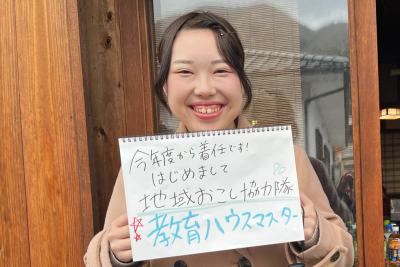 今年度から着任です!
はじめまして
地域おこし協力隊
☆教育ハウスマスター